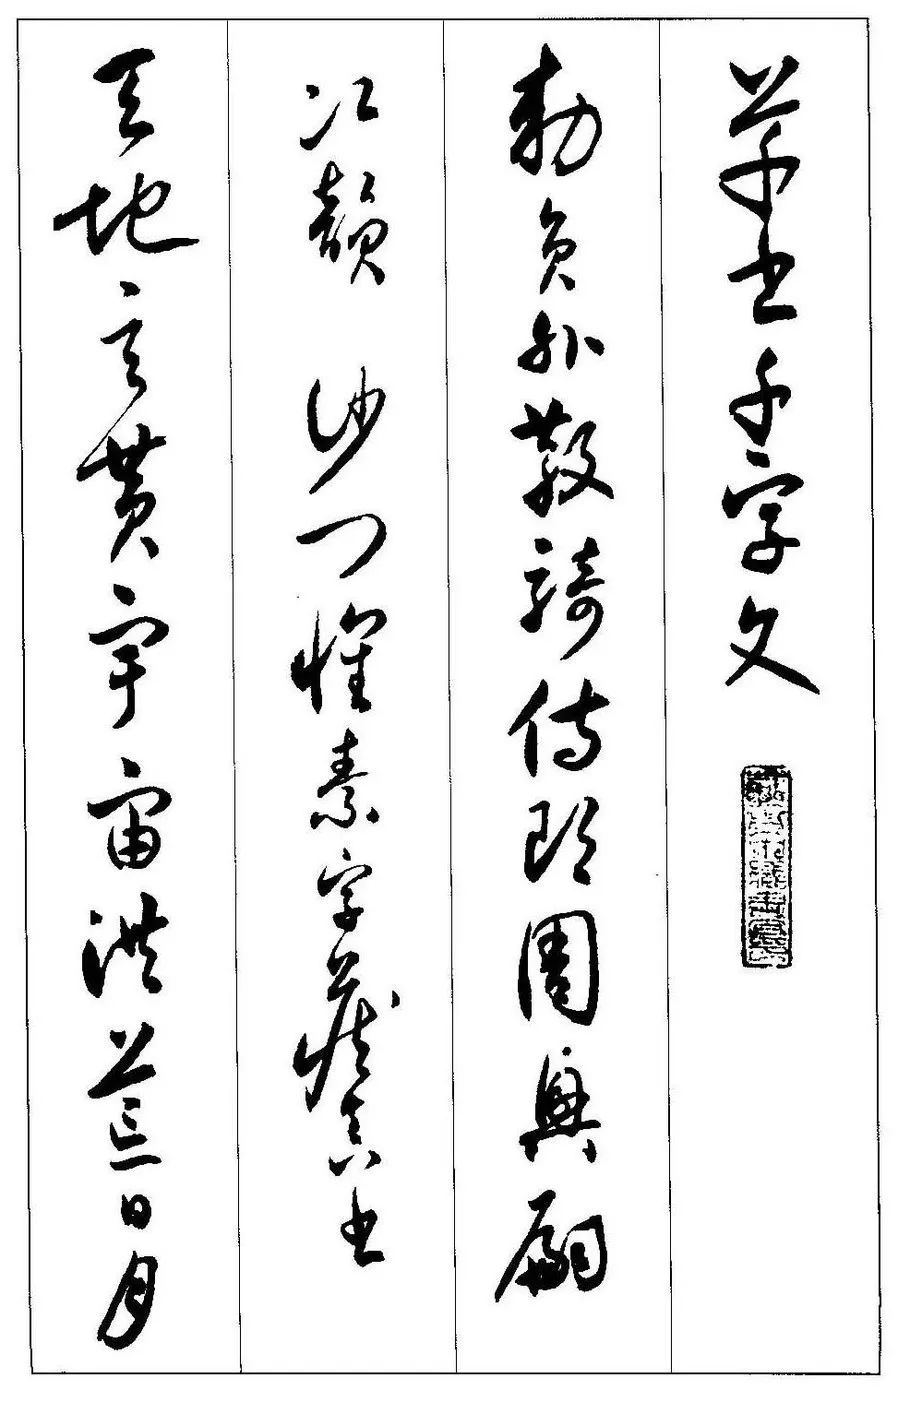 草書千字文
勅員外散騎侍郎周興嗣
次韻 沙門懷素字藏真書
天地玄黄宇宙洪荒日月